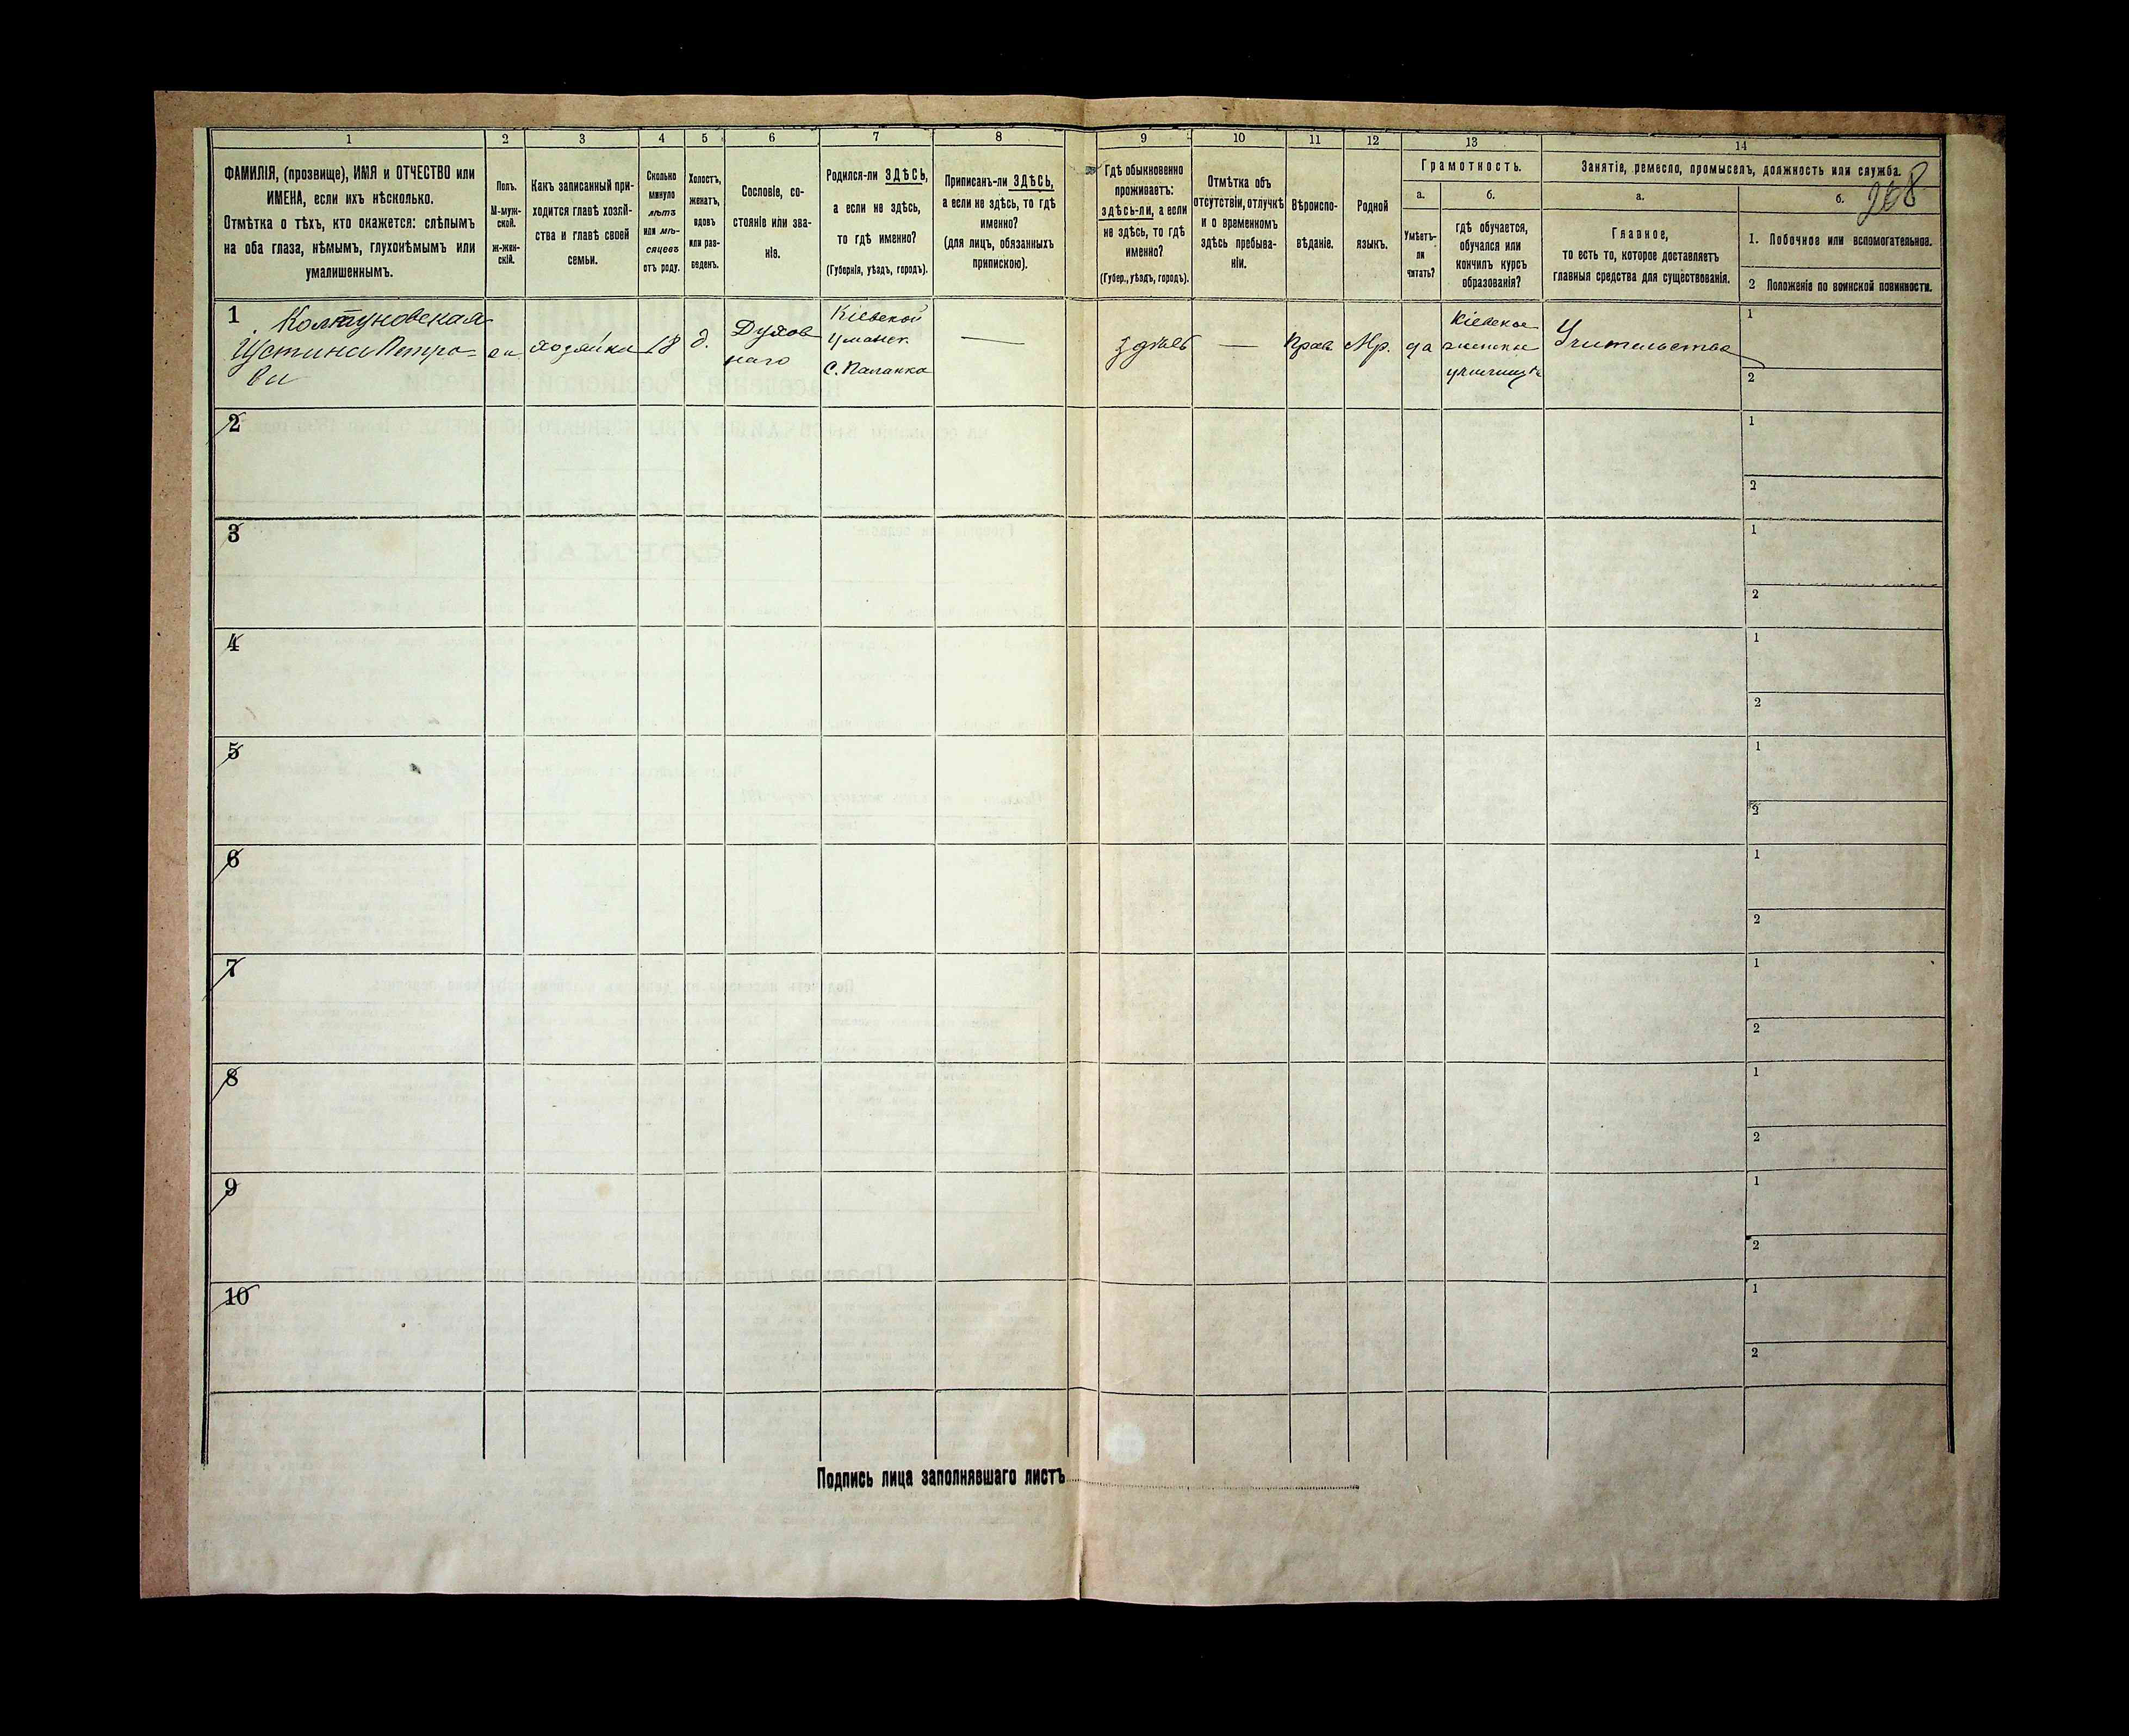 1 2 3 4 5 6 7 8 9 10 11 12 13 14
ФАМИЛІЯ, (прозвище), ИМЯ и ОТЧЕСТВО или
ИМЕНА, если ихъ нѣсколько.
Отмѣтка о тѣхъ, кто окажется: слѣпымъ
на оба глаза, нѣмымъ, глухонѣмымъ или
умалишеннымъ.
Полъ.
М-муж-
ской.
ж-жен-
скій.
Какъ записанный при-
ходится главѣ хозяй-
ства и главѣ своей
семьи.
Сколько
минуло
лѣтъ
или мѣ-
сяцевъ
отъ роду.
Холостъ,
женатъ,
вдовъ
или раз-
веденъ.
Сословіе, со-
стояніе или зва-
ніе.
Родился-ли ЗДѢСЬ,
а если не здѣсь,
то гдѣ именно?
(Губернія, уѣздъ, городъ).
Приписанъ-ли ЗДѢСЬ,
а если не здѣсь, то гдѣ
именно?
(для лицъ, обязанныхъ
припискою).
Гдѣ обыкновенно
проживаетъ:
здѣсь-ли, а если
не здѣсь, то гдѣ
именно?
(Губер., уѣздъ, городъ).
Отмѣтка объ
отсутствіи, отлучкѣ
и о временномъ
здѣсь пребыва-
ніи.
Вѣроиспо-
вѣданіе.
Родной
языкъ.
Грамотность.
а.
Умѣетъ-
ли
читать?
б.
гдѣ обучается,
обучался или
кончилъ курсъ
образованія?
Занятіе, ремесло, промыселъ, должность или служба.
а.
Главное,
то есть то, которое доставляетъ
главныя средства для существованія.
б.
268
1. Побочное или вспомогательное.
2 Положеніе по воинской повинности.
1
Колтуновская
Устина Петро-
ва
ж
хозяйка
18
д.
Духов
наго
Кіевской
Уманск.
С. Паланка
—
здѣсь
—
Прав.
Мр.
да
Кіевское
женское
училище
Учительство
1
2
2
1
2
3
1
2
4
1
2
5
1
2
6
1
2
7
1
2
8
1
2
9
1
2
10
1
2
Подпись лица заполнявшаго листъ